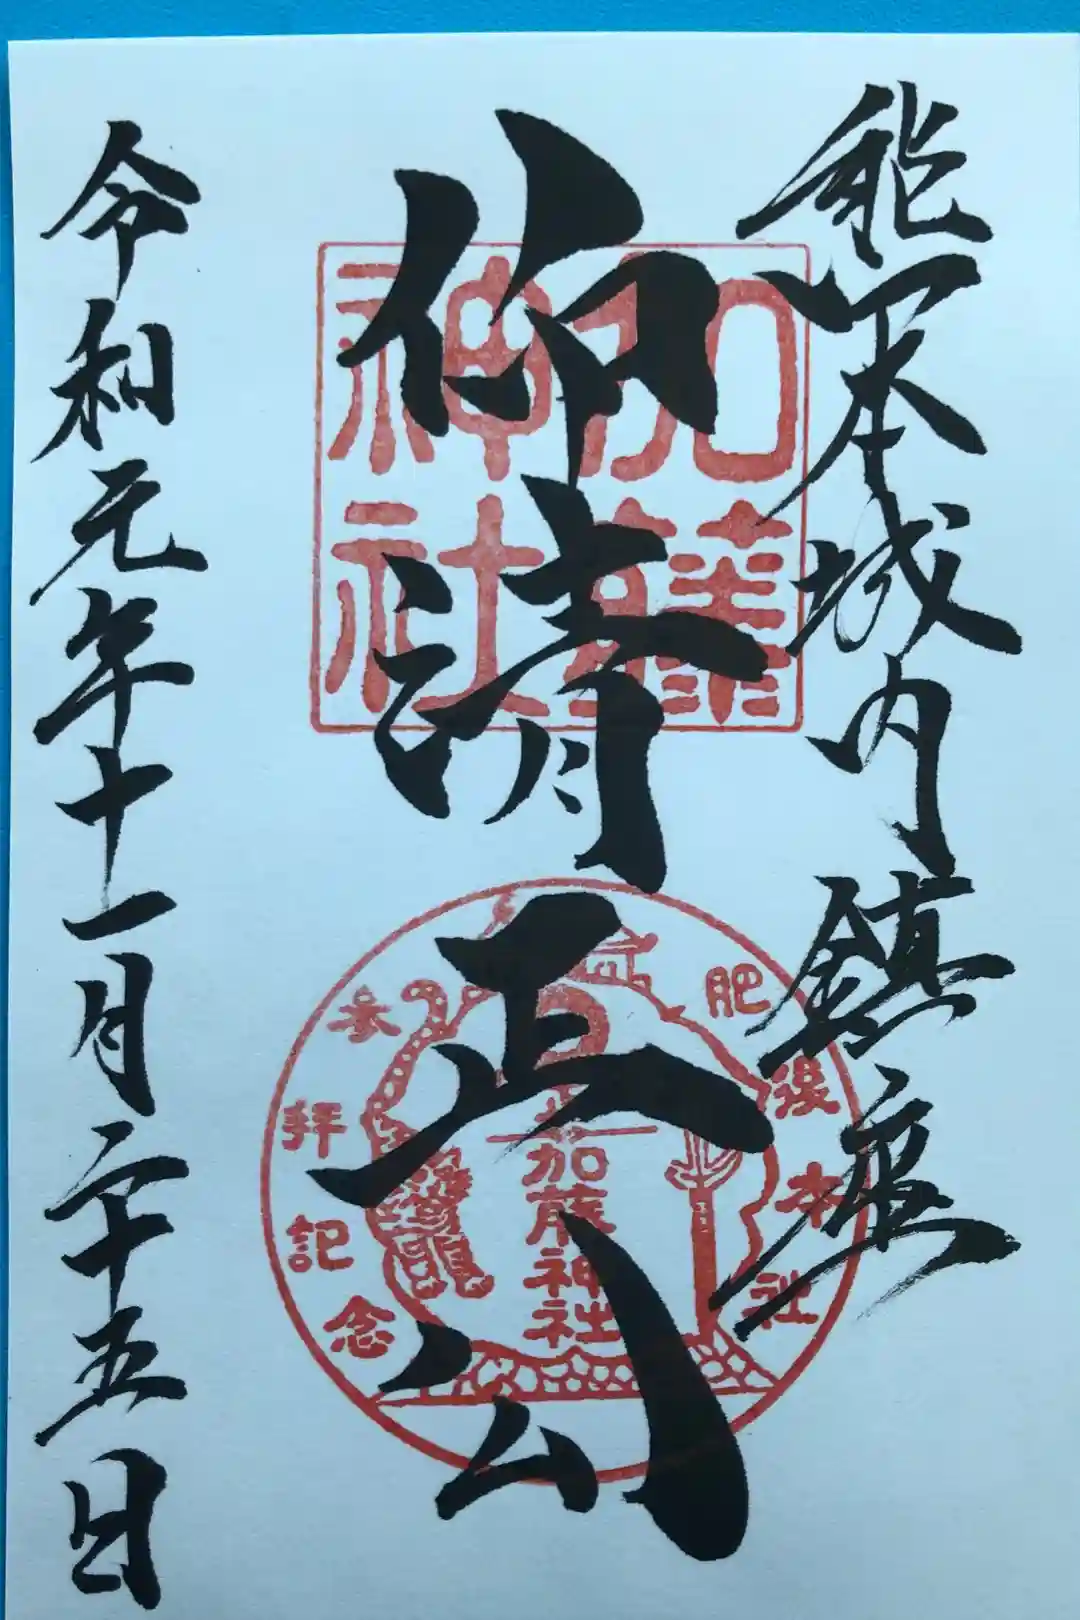 熊本城内鎮座
仰清正公
令和元年十一月二十五日
加藤
神社
肥後本社
加藤神社
参拝記念